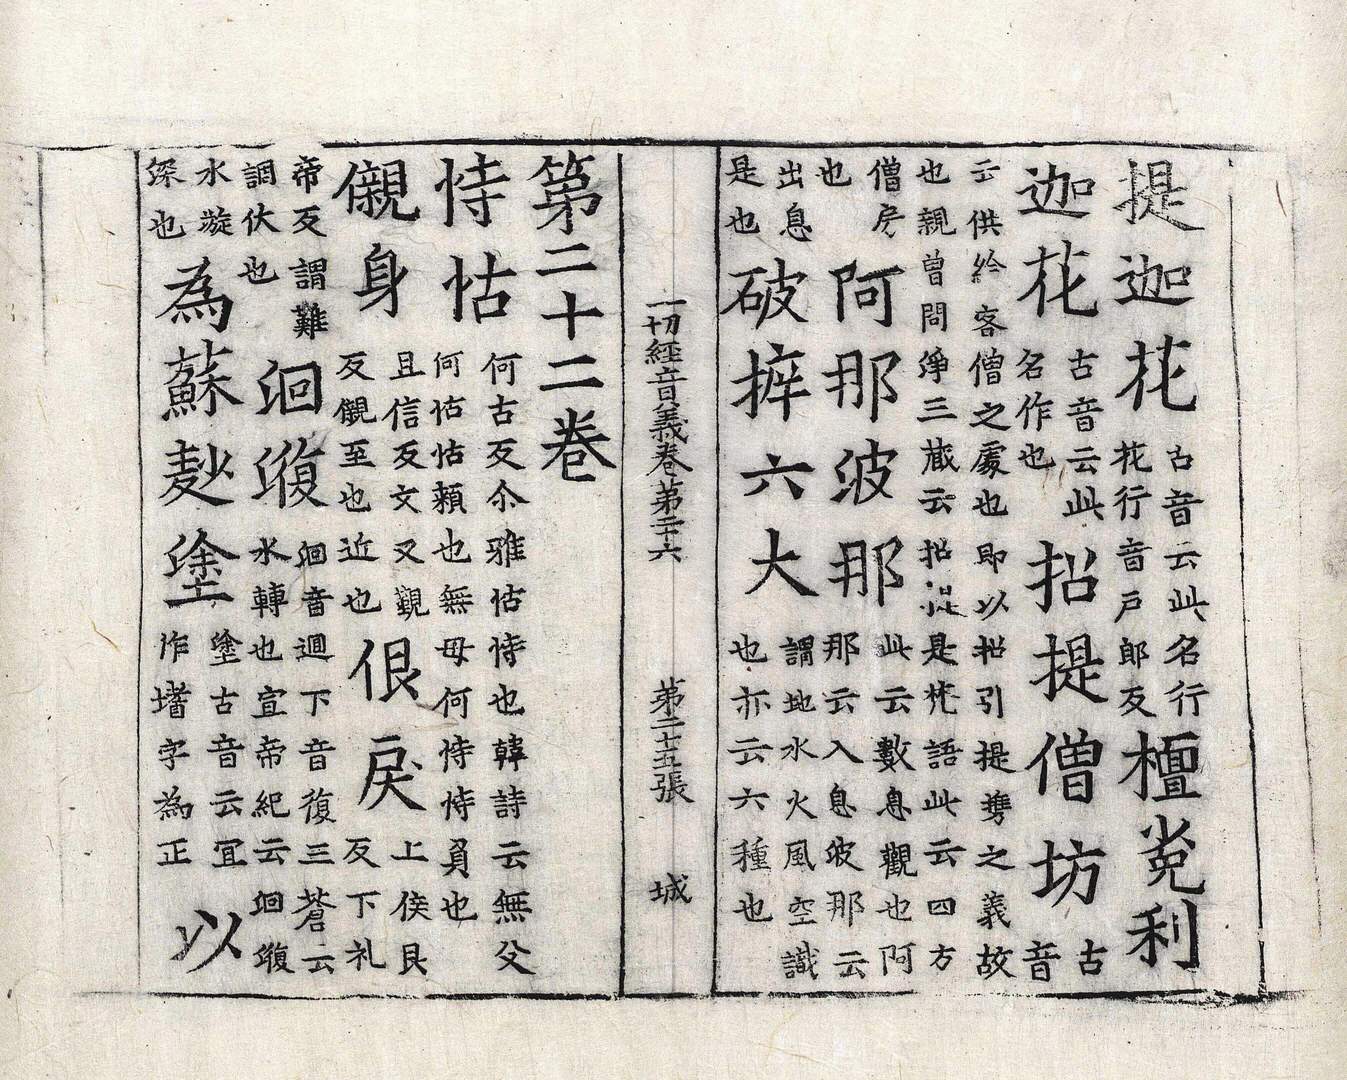 提迦花
古音云此名行
花行音戶郎反
檀
利
迦花
古音云此
名作也
招提僧坊
古
音
云供給客僧之處也即以招引提攜之義故
也親曾問淨三藏云招提是梵語此云四方
僧房
也
阿那波那
此云數息觀也阿
那云入息波那云
出息
是也
破捽六大
謂地水火風空識
也亦云六種也
一切經音義卷第二十六 第二十五張 城
第二十二卷
恃怙
何古反尒雅怙恃也韓詩云無父
何怙怙賴也無母何恃恃負也
儭身
且信反文又覲
反儭至也近也
佷戾
上侯艮
反下礼
帝反謂難
調伏也
洄澓
洄音迴下音復三蒼云
水轉也宣帝紀云洄澓
水漩
深也
為蘇麨塗
塗古音云冝
作墸字為正
以